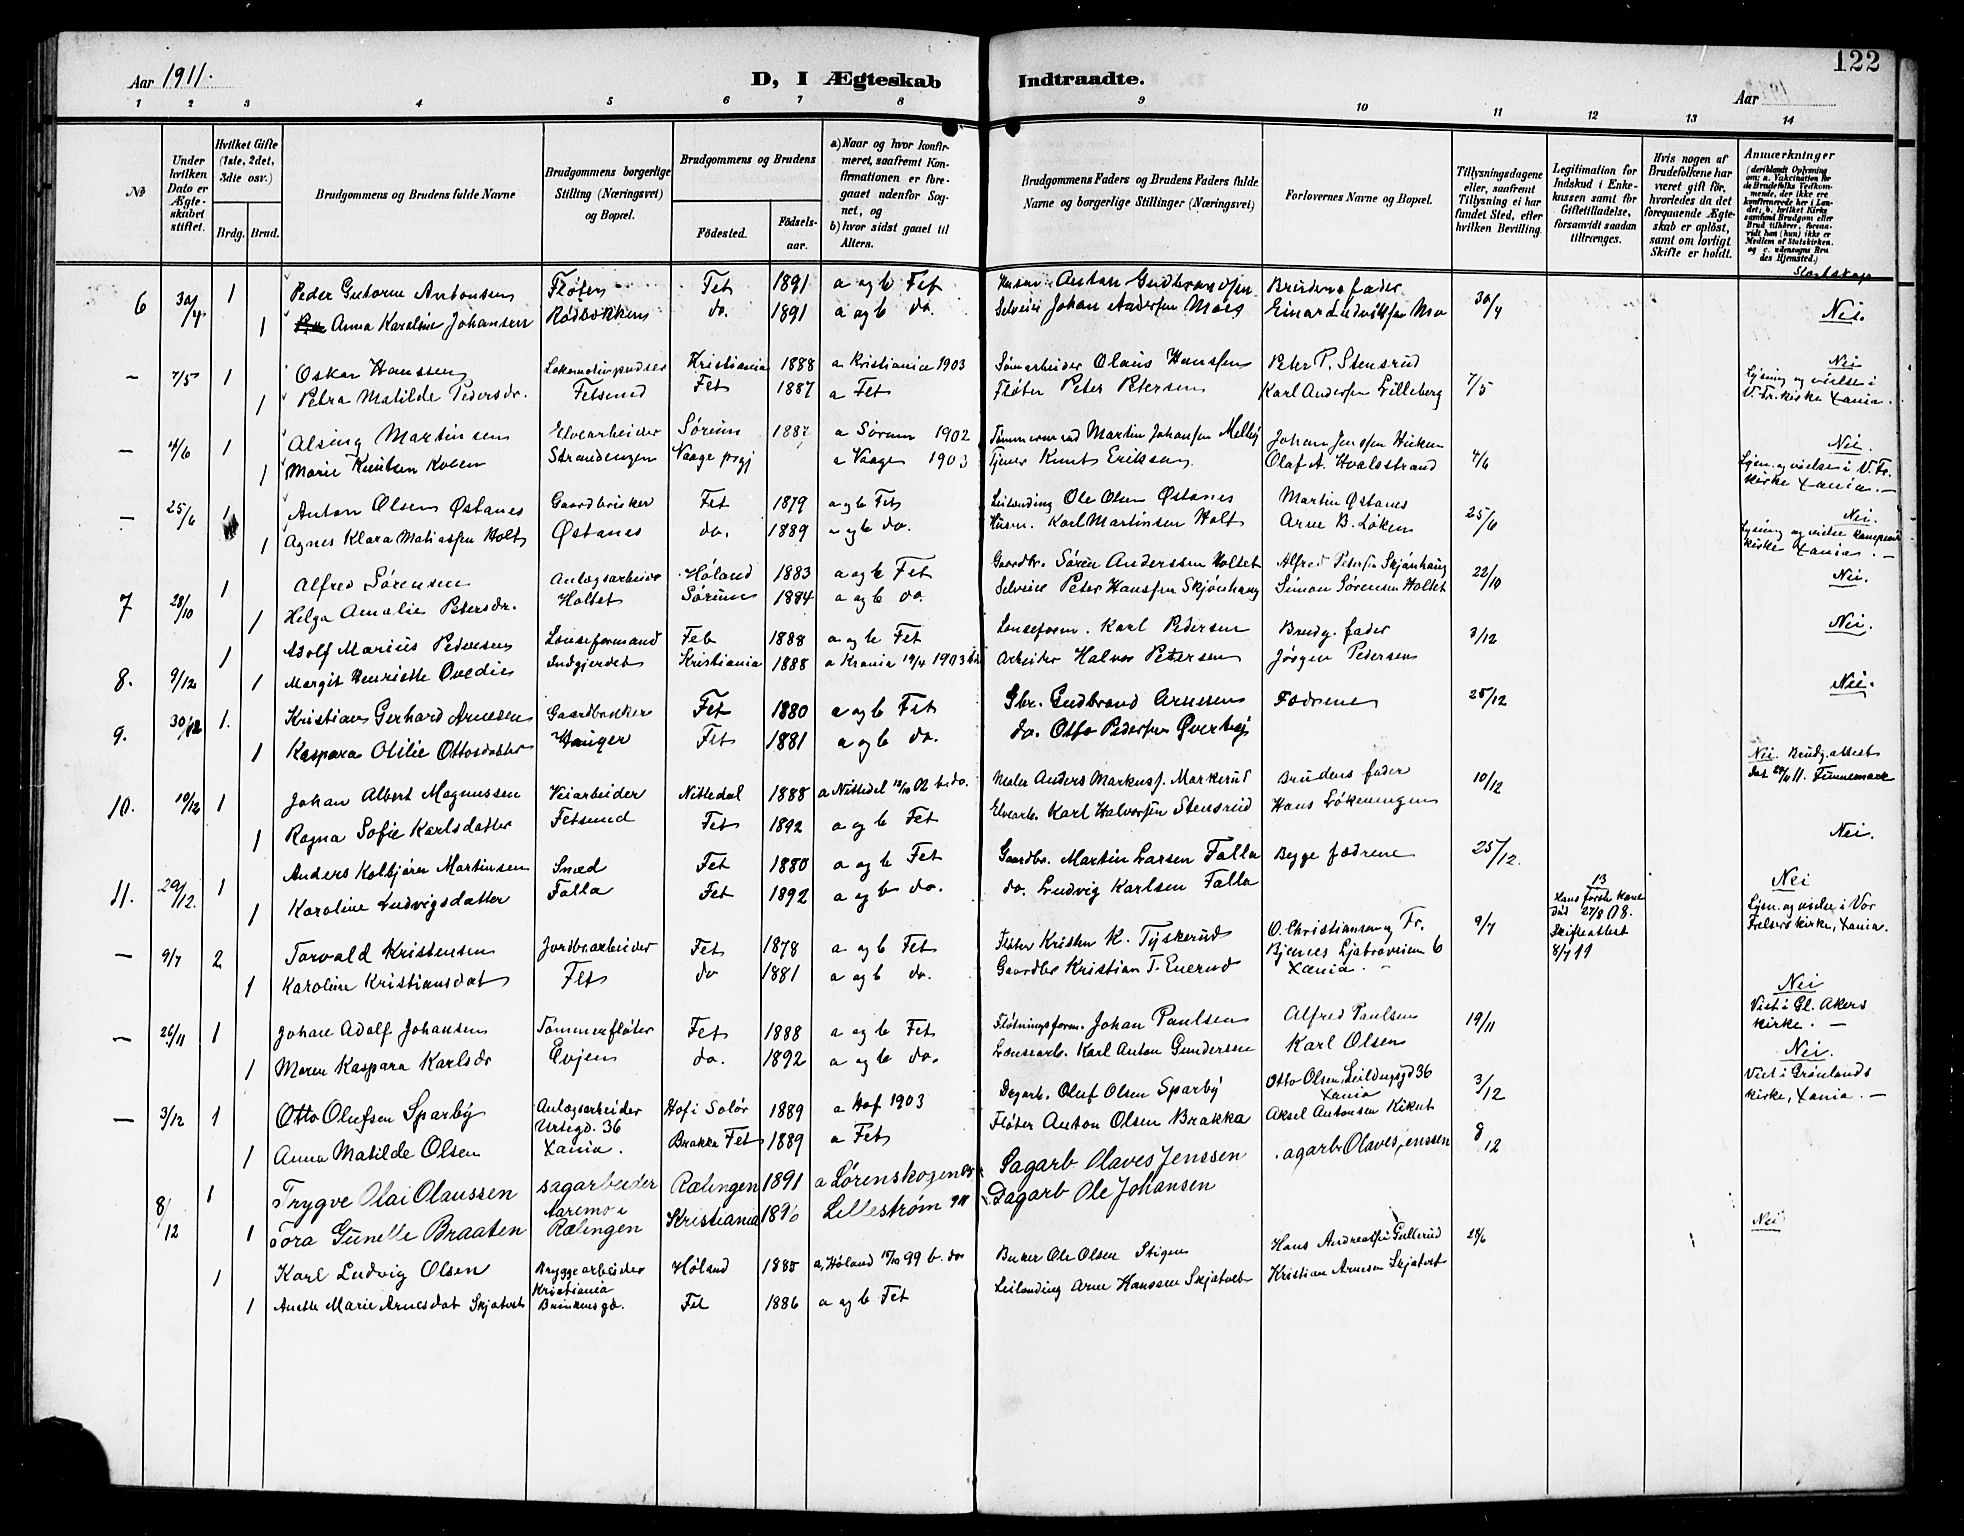 122
Aar 1911.
D, I Ægteskab Indtraadte.
Aar
1 2 3 4 5 6 7 8 9 10 11 12 13 14
No
Under hvilken Dato er Ægteskabet stiftet.
Hvilket Gifte (1ste, 2det, 3die osv.)
Brdg. Brud.
Brudgommens og Brudens fulde Navne
Brudgommens borgerlige Stilling (Næringsvei) og Bopæl.
Brudgommens og Brudens
Fødested.
Fødselsaar.
a) Naar og hvor konfirmeret, saafremt Konfirmationen er foregaaet udenfor Sognet, og
b) hvor sidst gaaet til Alters.
Brudgommens Faders og Brudens Faders fulde Navne og borgerlige Stillinger (Næringsvei)
Forlovernes Navne og Bopæl.
Tillysningsdagene eller, saafremt Tillysning ei har fundet Sted, efter hvilken Bevilling.
Legitimation for Indskud i Enkekassen samt for Giftetilladelse, forsaavidt saadan tiltrænges.
Hvis nogen af Brudefolkene har været gift før, hvorledes da det foregaaende Ægteskab er opløst, samt om lovligt Skifte er holdt.
Anmærkninger (deriblandt Oplysning om: a. Vakcination for de Brudefolks Vedkommende, der ikke ere konfirmerede her i Landet; b. hvilket Kirkesamfund Brudgom eller Brud tilhører, forsaavidt han (hun) ikke er Medlem af Statskirken, og c. udensogns Brudes Hjemsted.)
Slægtskap
6 30/4 1 Peder Guttorm Antonsen Fløter Fet 1891 a og b Fet Husm. Anton Gudbrandsen Brudens fader 30/4 Nei.
1 Anna Karoline Johansen Rødbækken do. 1891 a og b do. Selveier Johan Andersen Moes Einar Ludviksen Mo
— 7/5 1 Oskar Hanssen Lokomotivpudser Kristiania 1888 a Kristiania 1903 Olaus Hanssen Peter P. Stensrud 7/5 Nei
1 Petra Matilde Pedersdr. Fetsund Fet 1887 a Fet Fløter Peter Petersen Karl Andersen Lilleberg Lysning og vielse i V. Fr. kirke Xania.
— 4/6 1 Alsing Martinsen Elvearbeider Sørum 1887 a Sørum 1902 Tømmermand Martin Johansen Melby Johan Jenssen 4/6 Nei.
1 Marie Knutsen Strandengen Vaage prgj a Vaage 1903 Tjener Knut Eriksen Olaf A. Hvalstrand Lysn. og vielse i V. Fr. kirke Xania. —
— 25/6 1 Anton Olsen Østanes Gaardbruker Fet 1879 a og b Fet Leilending Ole Olsen Østanes Martin Østanes 25/6 Nei.
1 Agnes Klara Matiassen Holt Østanes do. 1889 a og b do. Husm. Karl Martinsen Holt Arne B. Løken Lysning og vielse kirke Xania. —
7 28/10 1 Alfred Sørensen Anlægsarbeider Høland 1883 a og b Fet Gaardbr. Søren Anderssen Holtet Alfred Petersen Skjønhaug 22/10 Nei.
1 Helga Amalie Petersdr. Holtet Sørum 1884 a og b do. Selveier Peter Hanssen Skjønhaug Simon Sørensen Holtet
8. 9/12 1 Adolf Marius Pedersen Lenseformand Fet 1888 a og b Fet Lenseform. Karl Pedersen Brudg. fader 3/12 Nei.
1 Margit Henriette Ovedie Indgjerdet Kristiania 1888 a Krania 19/4 1903 Arbeider Halvor Petersen Jørgen Pedersen
9. 30/12 1. Kristian Gerhard Arnesen Gaardbruker Fet 1880 a og b Fet Gbr. Gudbrand Arnesen Fædrene 25/12 Nei.
1 Kaspara Otilie Ottosdatter Hauger Fet 1881 a og b do. do. Otto Pedersen Øverby
10. 10/12 1 Johan Albert Magnussen Veiarbeider Nittedal 1888 a Nittedal 12/10 02 b. do. Anders Markuss. Markerud Brudens fader 10/12 Nei. Brudg. attest
1 Ragna Sofie Karlsdatter Fetsund Fet 1892 a og b Fet Elvearb. Karl Halvorsen Stensrud Hans Løkeneng
11. 29/12. 1 Anders Kolbjørn Martinsen Smed Fet 1880 a og b Fet Gaardbr. Martin Larsen Falla Begge fædrene 25/12. Nei.
1 Karoline Ludvigsdatter Falla Fet 1892 a og b do. do. Ludvig Karlsen Falla
— 9/7 2 Torvald Kristensen Jordbr.arbeider Fet 1878 a og b Fet Fløter Kristen K. Tyskerud O. Christiansen og Fr. 9/7 13 Hans første kone død 27/8 08. Skifteattest 8/7 11 Nei
1 Karoline Kristiansdat Fet do 1881 a og b do. Gaardbr Kristian T. Enerud Bjenes Ljabroveien 6 Xania. Lysn. og vielse i Vor Frelsers kirke, Xania.
— 26/11 1 Johan Adolf Johansen Tømmerfløter Fet 1888 a og b Fet Fløtningsform. Johan Paulsen Alfred Paulsen 19/11 Nei
1 Maren Kaspara Karlsdr Evjen do. 1892 a og b do. Lensearb. Karl Anton Gundersen Karl Olsen Viet i Gl. Akers kirke. —
— 3/12 1 Otto Olufsen Sparby Anlægsarbeider Hof i Solør 1889 a Hof 1903 Dagarb. Oluf Olsen Sparby Otto Olsen, 36 Xania 3/12 Nei.
1 Anna Matilde Olsen Urtegd. 36 Xania. Brakka Fet 1889 a Fet Fløter Anton Olsen Brakka Aksel Antonsen Kikut Viet i Grønlands kirke, Xania. —
8/12 1 Trygve Olai Olaussen sagarbeider Rælingen 1891 a Lørenskogen Sagarb Olaves Jenssen agarb Olaves, enssen 8/12
1 Tora Gunelle Braaten Aaremo i Rælingen Kristiania Lillestrøm 911 Dagarb Ole Johansen
1 Karl Ludvig Olsen Bryggearbeider Høland 1885 a, Høland 15/10 99 b. do Ole Olsen Stigen Hans Andreassen Gullerud 24/6 Nei
1 Anette Marie Arnesdat Skjatvet Kristiania Brinkensgd. Fet 1886 a og b Fet Leilending Arne Hanssen Skjatvet Kristian Arnesen Skjatvet